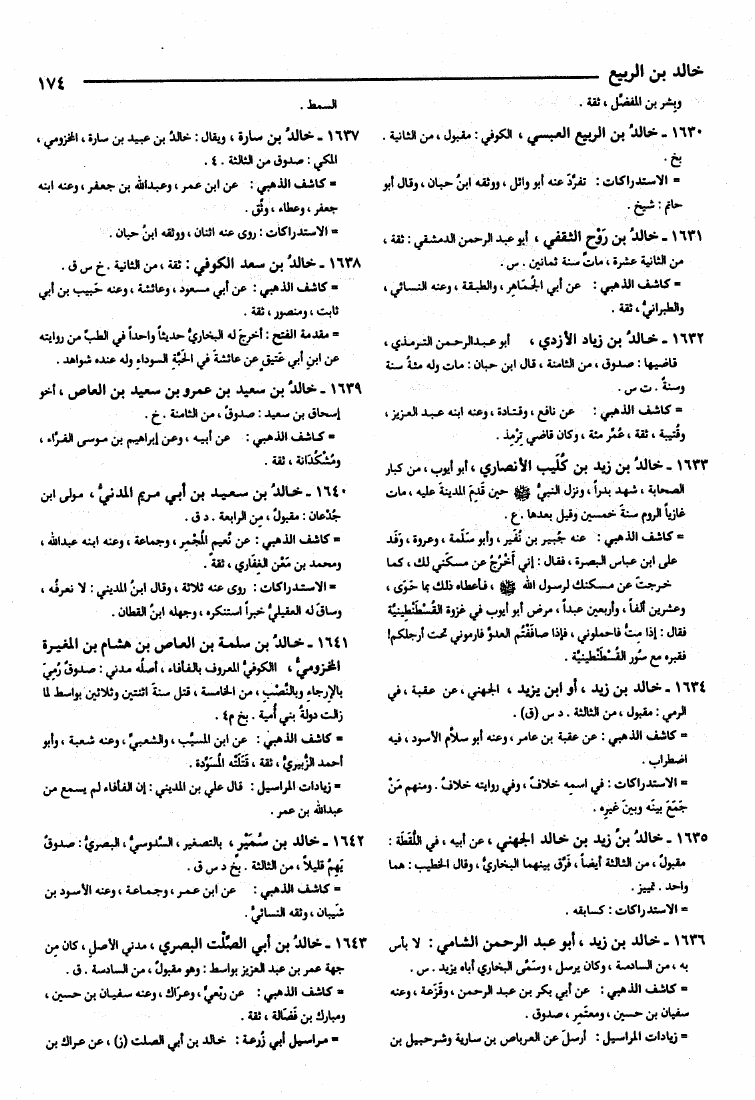 خالد بن الربيع
١٧٤
وبشر بن المفضَّل ، ثقة .
١٦٣٠ ـ خالدُ بن الربيع العبسي ، الكوفي : مقبول ، من الثانية .
بخ .
= الاستدراكات : تفرَّدَ عنه أبو وائل ، ووثقه ابنُ حبان ، وقال أبو
حاتم : شيخ .
١٦٣١ ـ خالدُ بن رَوْح الثقفي ، أبو عبد الرحمن الدمشقي : ثقة ،
من الثانية عشرة ، ماتَ سنة ثمانين . س .
= كاشف الذهبي : عن أبي الجُمَاهِر ، والطبقة ، وعنه النسائي ،
والطبرانيُّ ، ثقة .
١٦٣٢ ـ خالدُ بن زياد الأزدي ، أبو عبدالرحمن الترمذي ،
قاضيها : صدوق ، من الثامنة ، قال ابن حبان : مات وله مئةُ سنة
وسنةٌ . ت س .
= كاشف الذهبي : عن نافع ، وقتادة ، وعنه ابنه عبد العزيز ،
وقُتيبة ، ثقة ، عُمِّر مئة ، وكان قاضي تِرْمِذ .
١٦٣٣ ـ خالدُ بن زيد بن كُلَيب الأنصاري ، أبو أيوب ، من كبار
الصحابة ، شهد بدراً ، ونزل النبيُّ ﷺ حين قَدِمَ المدينةَ عليه ، مات
غازياً الروم سنةَ خمسين وقيل بعدها . ع .
= كاشف الذهبي : عنه جُبير بن نُفَير ، وأبو سَلَمة ، وعروة ، وَفَد
على ابن عباس البصرة ، فقال : إني أَخْرُجُ عن مسكني لك ، كما
خرجتَ عن مسكنك لرسول الله ﷺ ، فأعطاه ذلك بما حَوَى ،
وعشرين ألفاً ، وأربعين عبداً ، مرض أبو أيوب في غزوة القُسْطَنْطِينيَّة
فقال : إذا مِتُّ فاحملوني ، فإذا صافَفْتُم العدوَّ فارموني تحت أرجلكم!
فقبره مع سُور القُسْطَنْطِينيَّة .
١٦٣٤ ـ خالد بن زيد ، أو ابن يزيد ، الجهني ، عن عقبة ، في
الرمي : مقبول ، من الثالثة . د س (ق) .
= كاشف الذهبي : عن عقبة بن عامر ، وعنه أبو سلَّام الأسود ، فيه
اضطراب .
= الاستدراكات : في اسمِهِ خلافٌ ، وفي روايته خلافٌ . ومنهم مَنْ
جَمَعَ بينَه وبينَ غيرِه .
١٦٣٥ ـ خالدُ بنُ زيد بن خالد الجهني ، عن أبيه ، في اللُّقَطَة :
مقبولٌ ، من الثالثة أيضاً ، فَرَّق بينهما البخاريُّ ، وقال الخطيب : هما
واحد . تمييز .
= الاستدراكات : كسابقه .
١٦٣٦ ـ خالدُ بن زيد ، أبو عبد الرحمن الشامي : لا بأس
به ، من السادسة ، وكان يرسل ، وسَمَّى البخاري أباه يزيد . س .
= كاشف الذهبي : عن أبي بكر بن عبد الرحمن ، وقَزَعة ، وعنه
سفيان بن حسين ، ومعتَمِر ، صدوق .
= زيادات المراسيل : أرسلَ عن العرباض بن سارية وشرحبيل بن
السمط .
١٦٣٧ ـ خالدُ بن سارة ، ويقال : خالدُ بن عبيد بن سارة ، المخزومي ،
المكي : صدوق من الثالثة . ٤ .
= كاشف الذهبي : عن ابن عمر ، وعبدالله بن جعفر ، وعنه ابنه
جعفر ، وعطاء ، وثِّق .
= الاستدراكات : روى عنه اثنان ، ووثقه ابنُ حبان .
١٦٣٨ ـ خالدُ بن سعد الكوفي : ثقة ، من الثانية . خ س ق .
= كاشف الذهبي : عن أبي مسعود ، وعائشة ، وعنه حَبيب بن أبي
ثابت ، ومنصور ، ثقة .
= مقدمة الفتح : أخرجَ له البخاريُّ حديثاً واحداً في الطبِّ من روايته
عن ابنِ أبي عَتيقٍ عن عائشةَ في الحَبَّةِ السوداءِ وله عنده شواهد .
١٦٣٩ ـ خالدُ بن سعيد بن عمرو بن سعيد بن العاص ، أخو
إسحاق بن سعيد : صدوقٌ ، من الثامنة . خ .
= كاشف الذهبي : عن أبيه ، وعن إبراهيم بن موسى الفرَّاء ،
ومُشْكُدَانة ، ثقة .
١٦٤٠ ـ خالدُ بن سعيد بن أبي مريم المدنيُّ ، مولى ابن
جُدْعان : مقبولٌ ، من الرابعة . د ق .
= كاشف الذهبي : عن نُعيم المُجْمِر ، وجماعة ، وعنه ابنه عبدالله ،
ومحمد بن مَعْن الغِفَاري ، ثقة .
= الاستدراكات : روى عنه ثلاثة ، وقال ابنُ المديني : لا نعرفُه ،
وساقَ له العقيليُّ خبراً استنكره ، وجهله ابنُ القطان .
١٦٤١ ـ خالدُ بن سلمة بن العاص بن هشام بن المغيرة
المخزوميُّ ، الكوفيُّ المعروف بالفأفاء ، أصلُه مدني : صدوقٌ رُمِيَ
بالإرجاءِ وبالنَّصْبِ ، من الخامسة ، قتل سنةَ اثنتين وثلاثين بواسط لما
زالت دولةُ بني أمية . بخ م٤ .
= كاشف الذهبي : عن ابن المسيِّب ، والشعبيِّ ، وعنه شعبة ، وأبو
أحمد الزُّبيريُّ ، ثقة ، قَتَلَتْه المُسَوِّدة .
= زيادات المراسيل : قال علي بن المديني : إن الفأفاء لم يسمع من
عبدالله بن عمر .
١٦٤٢ ـ خالد بن سُمَيْر ، بالتصغير ، السَّدوسيُّ ، البصريُّ : صدوقٌ
يَهِمُ قليلاً ، من الثالثة . بخ د س ق .
= كاشف الذهبي : عن ابن عمر ، وجماعة ، وعنه الأسود بن
شَيبان ، وثقه النسائيُّ .
١٦٤٣ ـ خالدُ بن أبي الصَّلْت البصري ، مدني الأصلِ ، كان مِن
جهةِ عمر بن عبد العزيز بواسط : وهو مقبولٌ ، من السادسة . ق .
= كاشف الذهبي : عن ربْعيٍّ ، وعِرَاك ، وعنه سفيان بن حسين ،
ومبارك بن فَضَالة ، ثقة .
= مراسيل أبي زُرعة : خالد بن أبي الصلت (ز) ، عن عراك بن